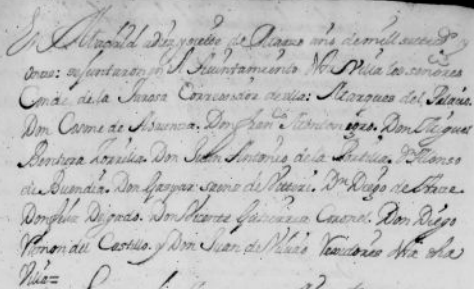 En Madrid a diez y siete de Março año de mill setecᵗᵒˢ y
onçe: se juntaron en el Ayuntamiento desta Villa los señores
Conde de la Jarosa Correxidor de ella: Marques del Palacio
Don Cosme de Abaunza. Don Franᶜᵒ Montenegro. Don Miguel
Bentura Zorrilla. Don Juan Antonio de la Portilla. Dⁿ Alonso
de Buendia. Don Gaspar de Dⁿ Diego de
Don Felix Delgado. Don Vicente Gutierrez Coronel. Don Diego
del Castillo. y Don Juan de Rexidores desta dha
Villa=